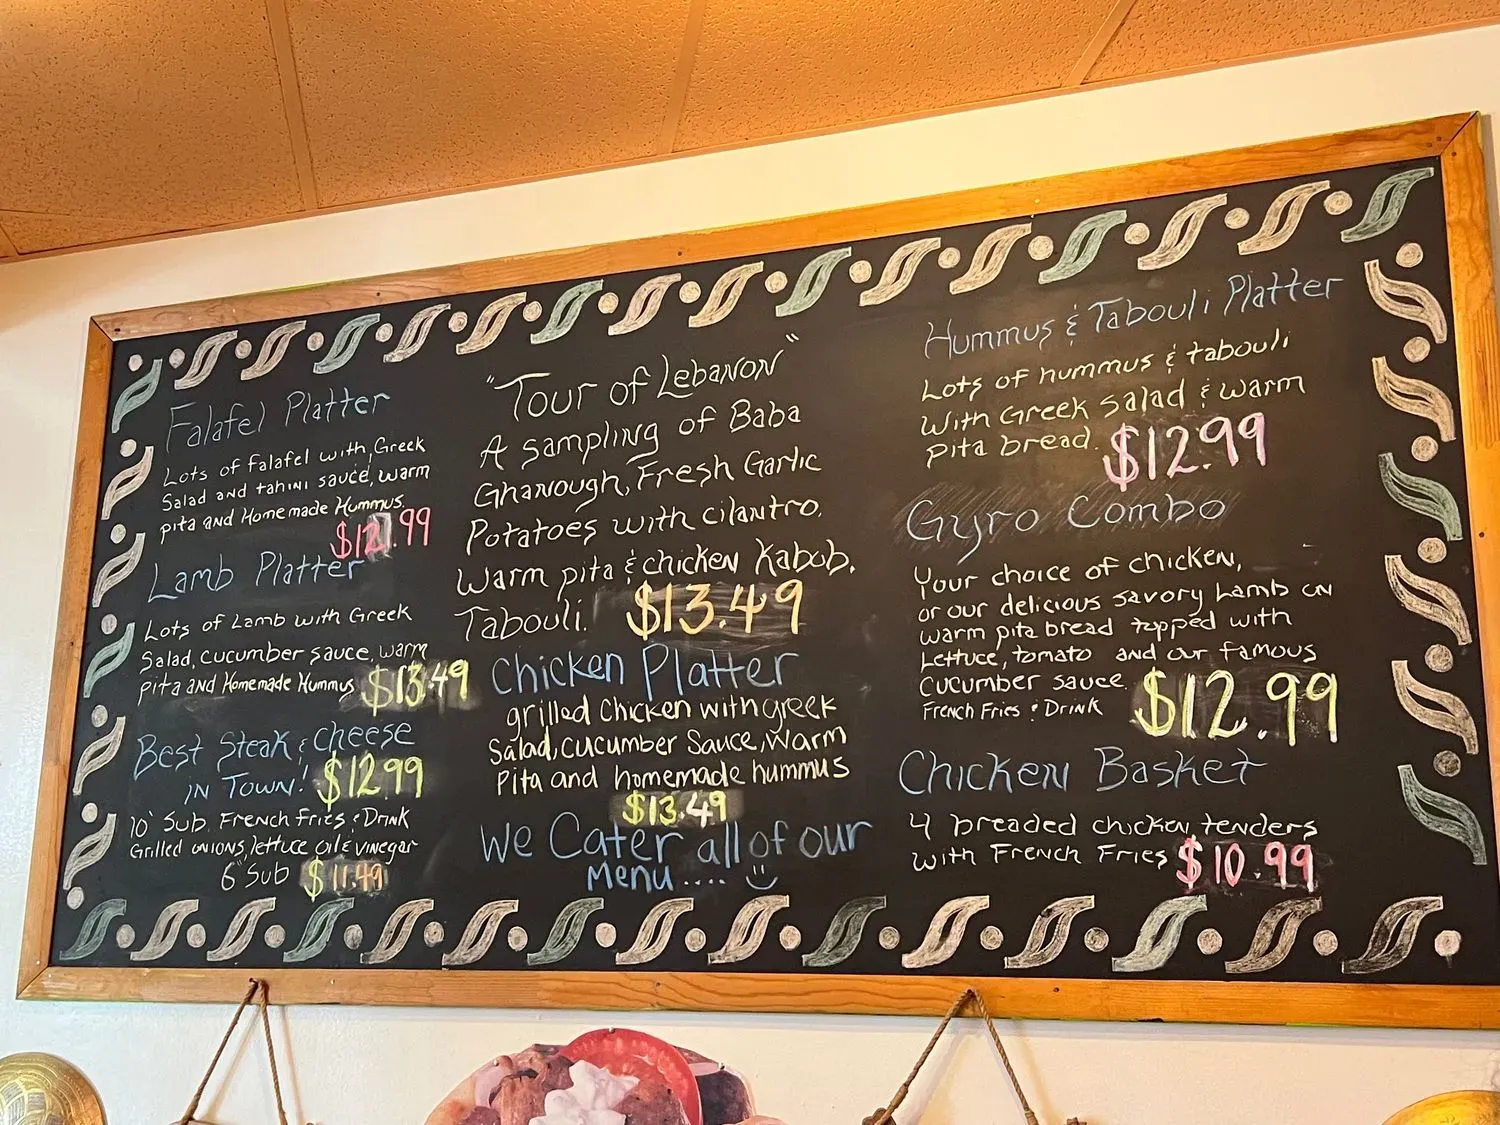 Falafel Platter
Lots of falafel with Greek
Salad and tahini sauce, warm
pita and Homemade Hummus.
$12.99
Lamb Platter
Lots of Lamb with Greek
Salad, cucumber sauce, warm
pita and Homemade Hummus $13.49
Best Steak & Cheese
in Town! $12.99
10" Sub, French Fries & Drink
Grilled onions, lettuce oil & vinegar
6" Sub $11.49
"Tour of Lebanon"
A sampling of Baba
Ghanough, Fresh Garlic
Potatoes with cilantro,
Warm pita & chicken Kabob,
Tabouli. $13.49
Chicken Platter
grilled Chicken with greek
Salad, cucumber Sauce, Warm
Pita and homemade hummus
$13.49
We Cater all of our
Menu....
Hummus & Tabouli Platter
Lots of hummus & tabouli
With Greek salad & warm
pita bread. $12.99
Gyro Combo
Your choice of chicken,
or our delicious savory Lamb on
warm pita bread topped with
Lettuce, tomato and our famous
cucumber sauce.
French Fries & Drink $12.99
Chicken Basket
4 breaded chicken tenders
with French Fries $10.99